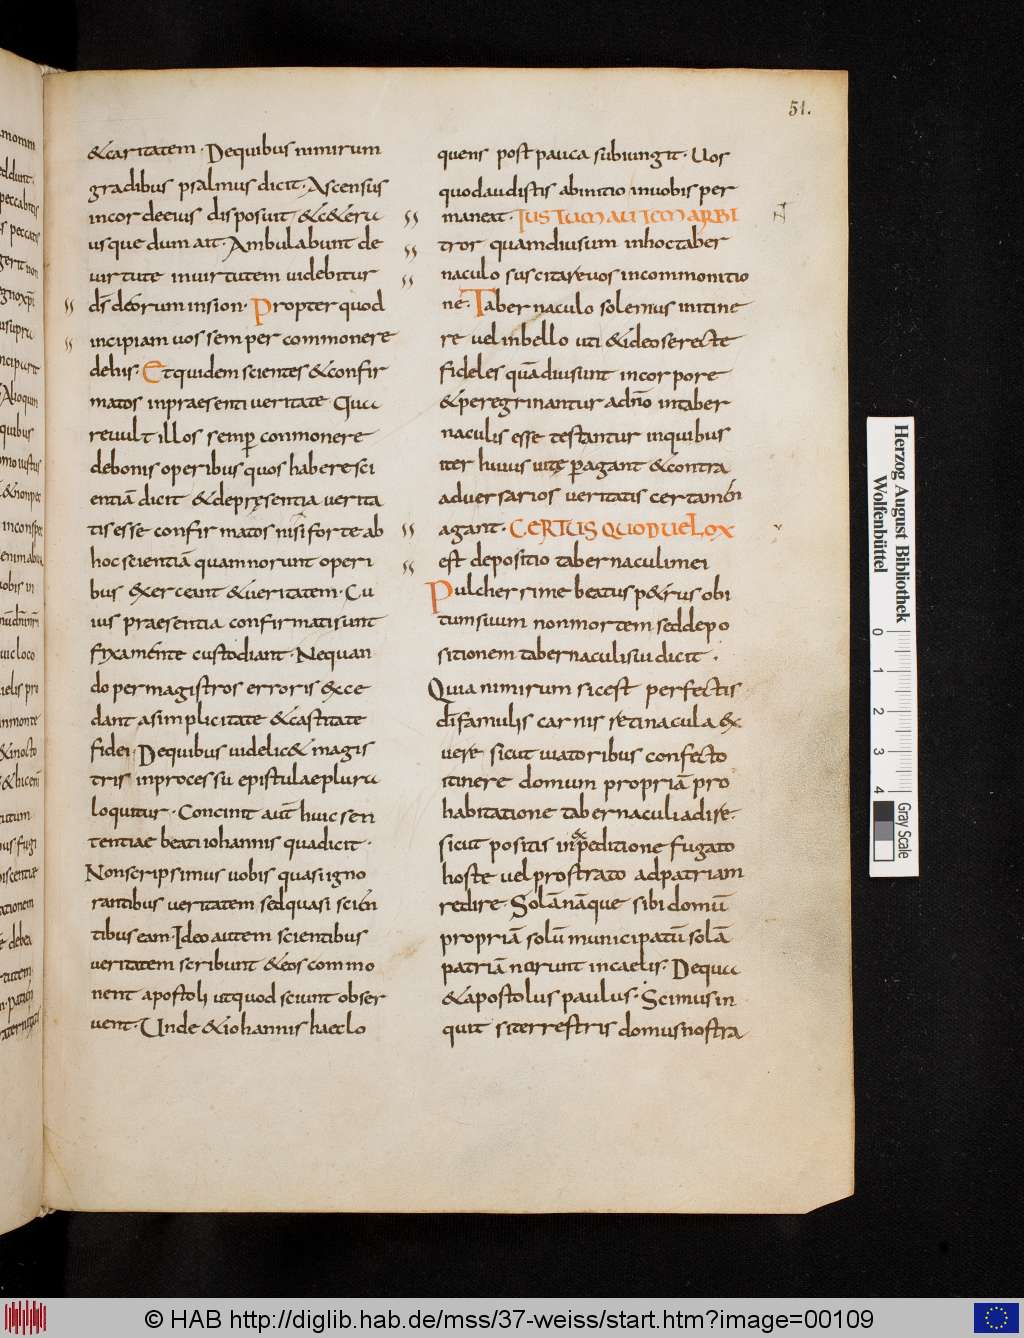 51.
&caritatem. Dequibus nimirum
gradibus psalmus dicit. Ascensus
incor deeius disposuit &c&era
usque dum ait. Ambulabunt de
virtute inuirtutem uidebitur
ds deorum insion. Propter quod
incipiam uos semper commonere
dehis. Etquidem scientes &confir
matos inpraesenti ueritate Qua
reuult illos semp conmonere
debonis operibus quos habere sci
entiā dicit &depręsentia uerita
tis esse confirmatos nisi forte ab
hoc scientiā quam norunt operi
bus exerceant &ueritatem. Cu
ius praesentia confirmati sunt
fixa mente custodiant. Nequan
do per magistros erroris exce
dant asimplicitate &castitate
fidei. Dequibus uidelic& magis
tris inprocessu epistulae plura
loquitur. Concinit aut huic sen
tentiae beati iohannis quadicit.
Nonscripsimus uobis quasi igno
rantibus ueritatem sed quasi scien
tibus eam. Ideo autem scientibus
ueritatem scribunt &eos commo
nent apostoli utquod sciunt obser
uent. Unde &iohannis haec lo
quens post pauca subiungit. Uos
quodaudistis abinitio inuobis per
maneat. IUSTUM AUTEM ARBI
tror quamdiu sum inhoc taber
naculo suscitare uos incommonitio
ne. Tabernaculo solemus initine
re uel inbello uti &ideo se recte
fideles quādiu sunt incorpore
&peregrinantur adno intaber
naculis esse testantur inquibus
iter huius uitę pagant &contra
aduersarios ueritatis certamen
agant. CERTUS QUOD UELOX
est depositio tabernaculi mei
Pulcherrime beatus p&rus obi
tum suum non mortem sed depo
sitionem tabernaculi sui dicit.
Quia nimirum sic est perfectis
di famulis carnis retinacula ex
uere sicut uiatoribus confecto
itinere domum propriā pro
habitatione tabernaculi adire.
sicut positis inexpeditione fugato
hoste uel prostrato adpatriam
redire. Solā nāque sibi domū
propriā solū municipatū solā
patriā norunt incaelis. Dequa
&apostolus paulus. Scimus in
quit si terrestris domus nostra
Herzog August Bibliothek
Wolfenbüttel
0 1 2 3 4
Gray Scale
© HAB http://diglib.hab.de/mss/37-weiss/start.htm?image=00109